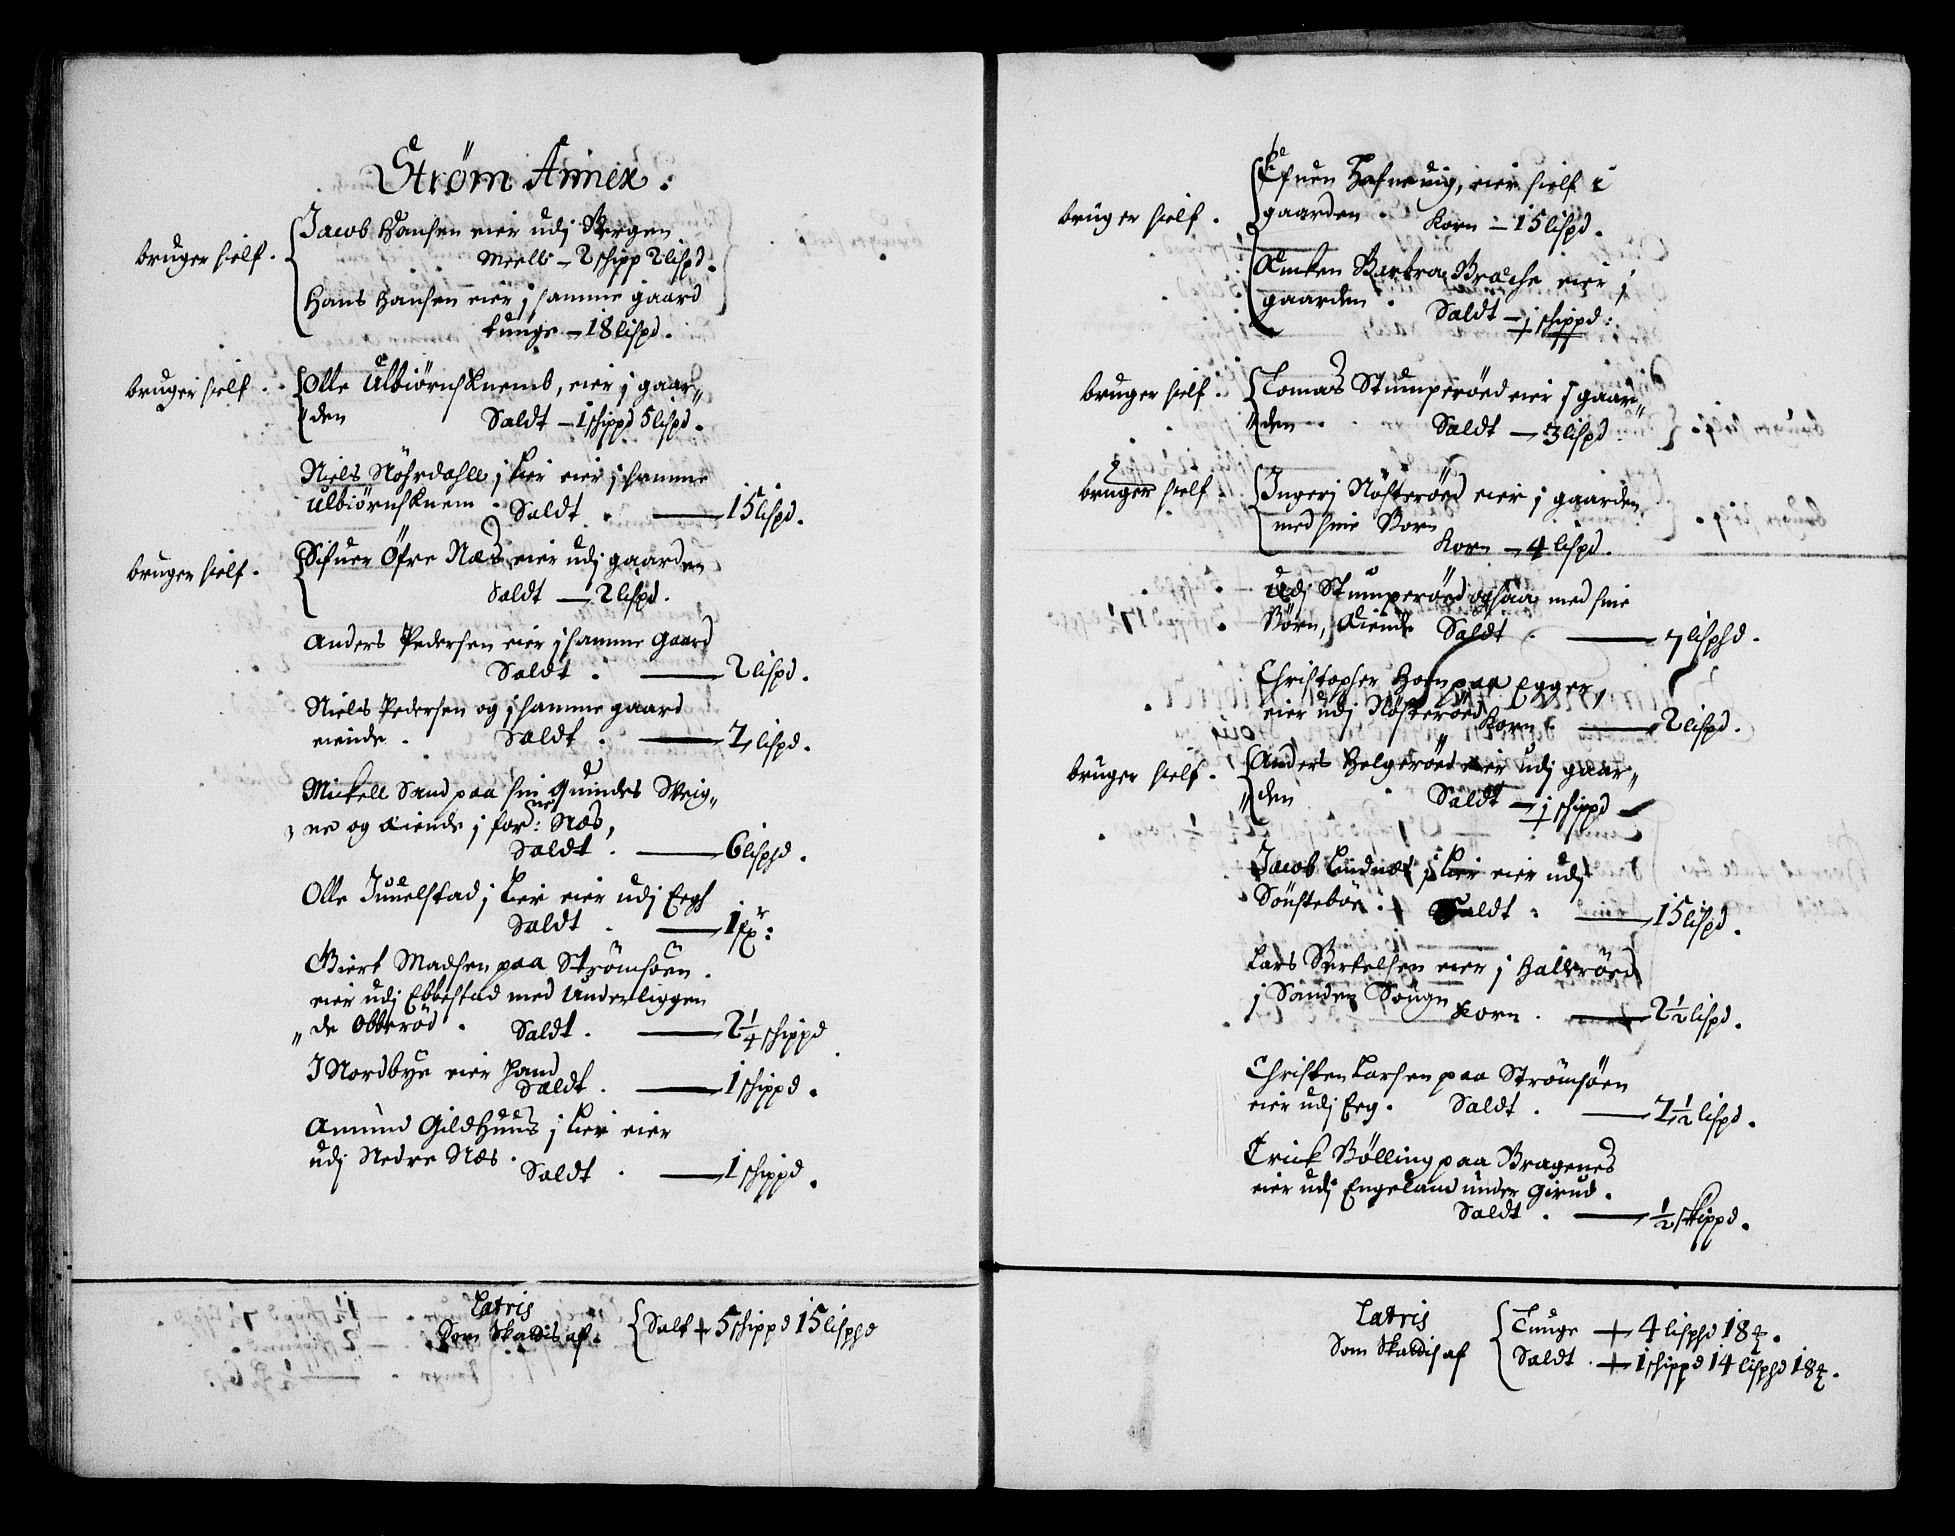 Strøm Annex:
bruger sielf.
Jacob Hansen eier udj Bergen
Meelle – 2 schipp 2 lispd.
Hans Hansen eier j samme gaard
tunge – 18 lispd.
bruger sielf.
Olle Ulbiörnsknemb, eier j gaar„
„den Saldt – 1 schippd 5 lispd.
Niels Nöhrdahll j Lier eier j samme
Ulbiörnsknem. Saldt . — 15 lispd.
bruger sielf.
Sifuer Öfre Næs eier udj gaarden
Saldt — 2 lispd.
Anders Pedersen eier j samme Gaard
Saldt . — 2 lispd.
Niels Pedersen og j samme gaard
eiende . Saldt . — 2 lispd.
Mickell Sand paa sin Quindes Weig„
ne og eiende j forne: Næs,
Saldt . — 6 lisphd.
Olle Juuelstad j Lier eier udj Eegh
Saldt . — 1 fxr:
Giert Madsen paa Strömsöen.
eier udj Ebbestad med Underliggen
„de Obberöd . Saldt . — 2 1/4 schippd
J Nordbye eier Hand
Saldt . — 1 schippd.
Amund Gildhuus j Lier eier
udj Nedre Næs .
Saldt . — 1 schippd.
Latris
Som Skatdis af. Salt + 5 schippd 15 lisphd
bruger sielf.
Efuen Hafnevig, eier sielf i
gaarden . Korn – 15 lispd.
Encken Barbra Brache eier j
gaarden . Saldt – j schippd:
bruger sielf.
Tomas Stumperöed eier j gaar„
„den . Saldt – 3 lispd.
bruger sielf
Ingerj Nösteröed eier j gaarden
med sine Born
Korn – 4 lispd.
Udj Stumperöed ogsaa med sine
Börn, Eiende Saldt . — 7 lisphd.
Christopher Hofn paa Egger,
eier udj Nösteröed Korn . — 2 lispd.
bruger sielf.
Anders Helgeröed eier udj gaar„
„den Saldt – j schippd
Jacob Lindnæs j Lier eier udj
Sönsteböe . Saldt . — 15 lispd.
Lars Bertelsen eier j Halleröed
j Sanden Sougn Korn . — 2 1/2 lispd.
Christen Larsen paa Strömsöen
eier udj Eeg. Saldt . — 2 1/2 lispd.
Erick Bölling paa Bragenes
eier udj Engeland under Girud.
Saldt . — 1/2 skippd.
Latris
Som Skatdis af
Tunge + 4 lisphd 18 .
Saldt . + 1 schippd 14 lisphd 18 .